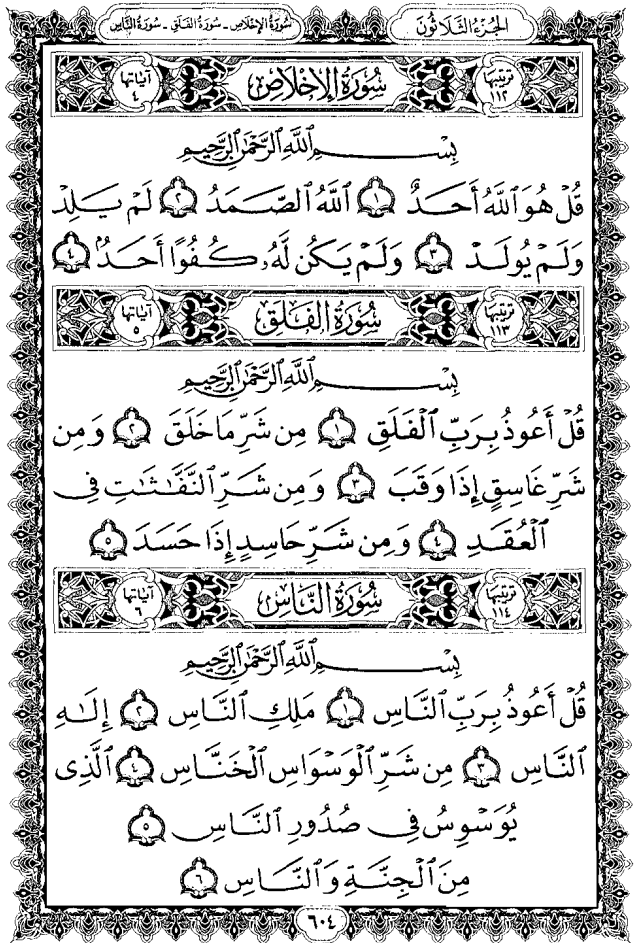 الجُزْءُ الثَّلَاثُونَ
سُورَةُ الإِخْلَاصِ - سُورَةُ الفَلَقِ - سُورَةُ النَّاسِ
ترتيبها ١١٢ سُورَةُ الإِخْلَاصِ آياتها ٤
بِسْمِ اللَّهِ الرَّحْمَٰنِ الرَّحِيمِ
قُلْ هُوَ اللَّهُ أَحَدٌ ١ اللَّهُ الصَّمَدُ ٢ لَمْ يَلِدْ
وَلَمْ يُولَدْ ٣ وَلَمْ يَكُن لَّهُۥ كُفُوًا أَحَدٌۢ ٤
ترتيبها ١١٣ سُورَةُ الفَلَقِ آياتها ٥
بِسْمِ اللَّهِ الرَّحْمَٰنِ الرَّحِيمِ
قُلْ أَعُوذُ بِرَبِّ الْفَلَقِ ١ مِن شَرِّ مَا خَلَقَ ٢ وَمِن
شَرِّ غَاسِقٍ إِذَا وَقَبَ ٣ وَمِن شَرِّ النَّفَّٰثَٰتِ فِى
الْعُقَدِ ٤ وَمِن شَرِّ حَاسِدٍ إِذَا حَسَدَ ٥
ترتيبها ١١٤ سُورَةُ النَّاسِ آياتها ٦
بِسْمِ اللَّهِ الرَّحْمَٰنِ الرَّحِيمِ
قُلْ أَعُوذُ بِرَبِّ النَّاسِ ١ مَلِكِ النَّاسِ ٢ إِلَٰهِ
النَّاسِ ٣ مِن شَرِّ الْوَسْوَاسِ الْخَنَّاسِ ٤ الَّذِى
يُوَسْوِسُ فِى صُدُورِ النَّاسِ ٥
مِنَ الْجِنَّةِ وَالنَّاسِ ٦
٦٠٤